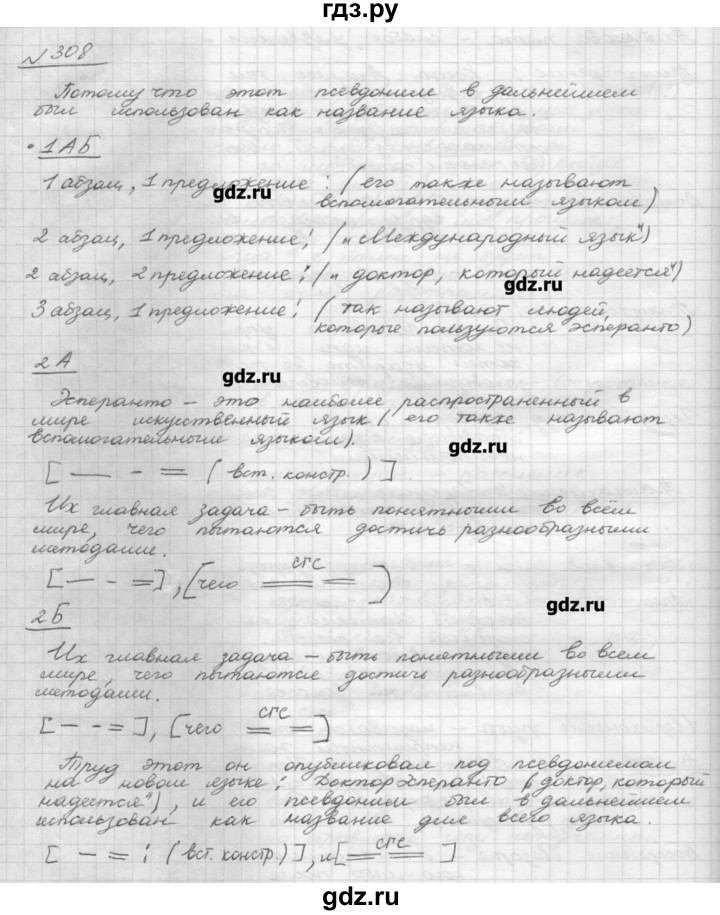 гдз.ру
№308
Потому что этот псевдоним в дальнейшем
был использован как название языка.
• 1АБ
1 абзац, 1 предложение: (его также называют
вспомогательным языком)
gdz.ru
2 абзац, 1 предложение: („Международный язык")
2 абзац, 2 предложение: („доктор, который надеется")
gdz.ru
3 абзац, 1 предложение: (так называют людей,
которые пользуются эсперанто)
2А
gdz.ru
Эсперанто – это наиболее распространенный в
мире искусственный язык (его также называют
вспомогательным языком).
gdz.ru
[ — - = (вст. констр.)]
Их главная задача – быть понятными во всём
мире, чего пытаются достичь разнообразными
методами.
[— - =], (чего сгс)
gdz.ru
2Б
Их главная задача – быть понятными во всем
мире, чего пытаются достичь разнообразными
методами.
[— - =], (чего сгс)
Труд этот он опубликовал под псевдонимом
на новом языке: Доктор Эсперанто („доктор, который
надеется"), и его псевдоним был в дальнейшем
использован как название для всего языка.
[ — = : (вст. констр.)], и [сгс]
gdz.ru